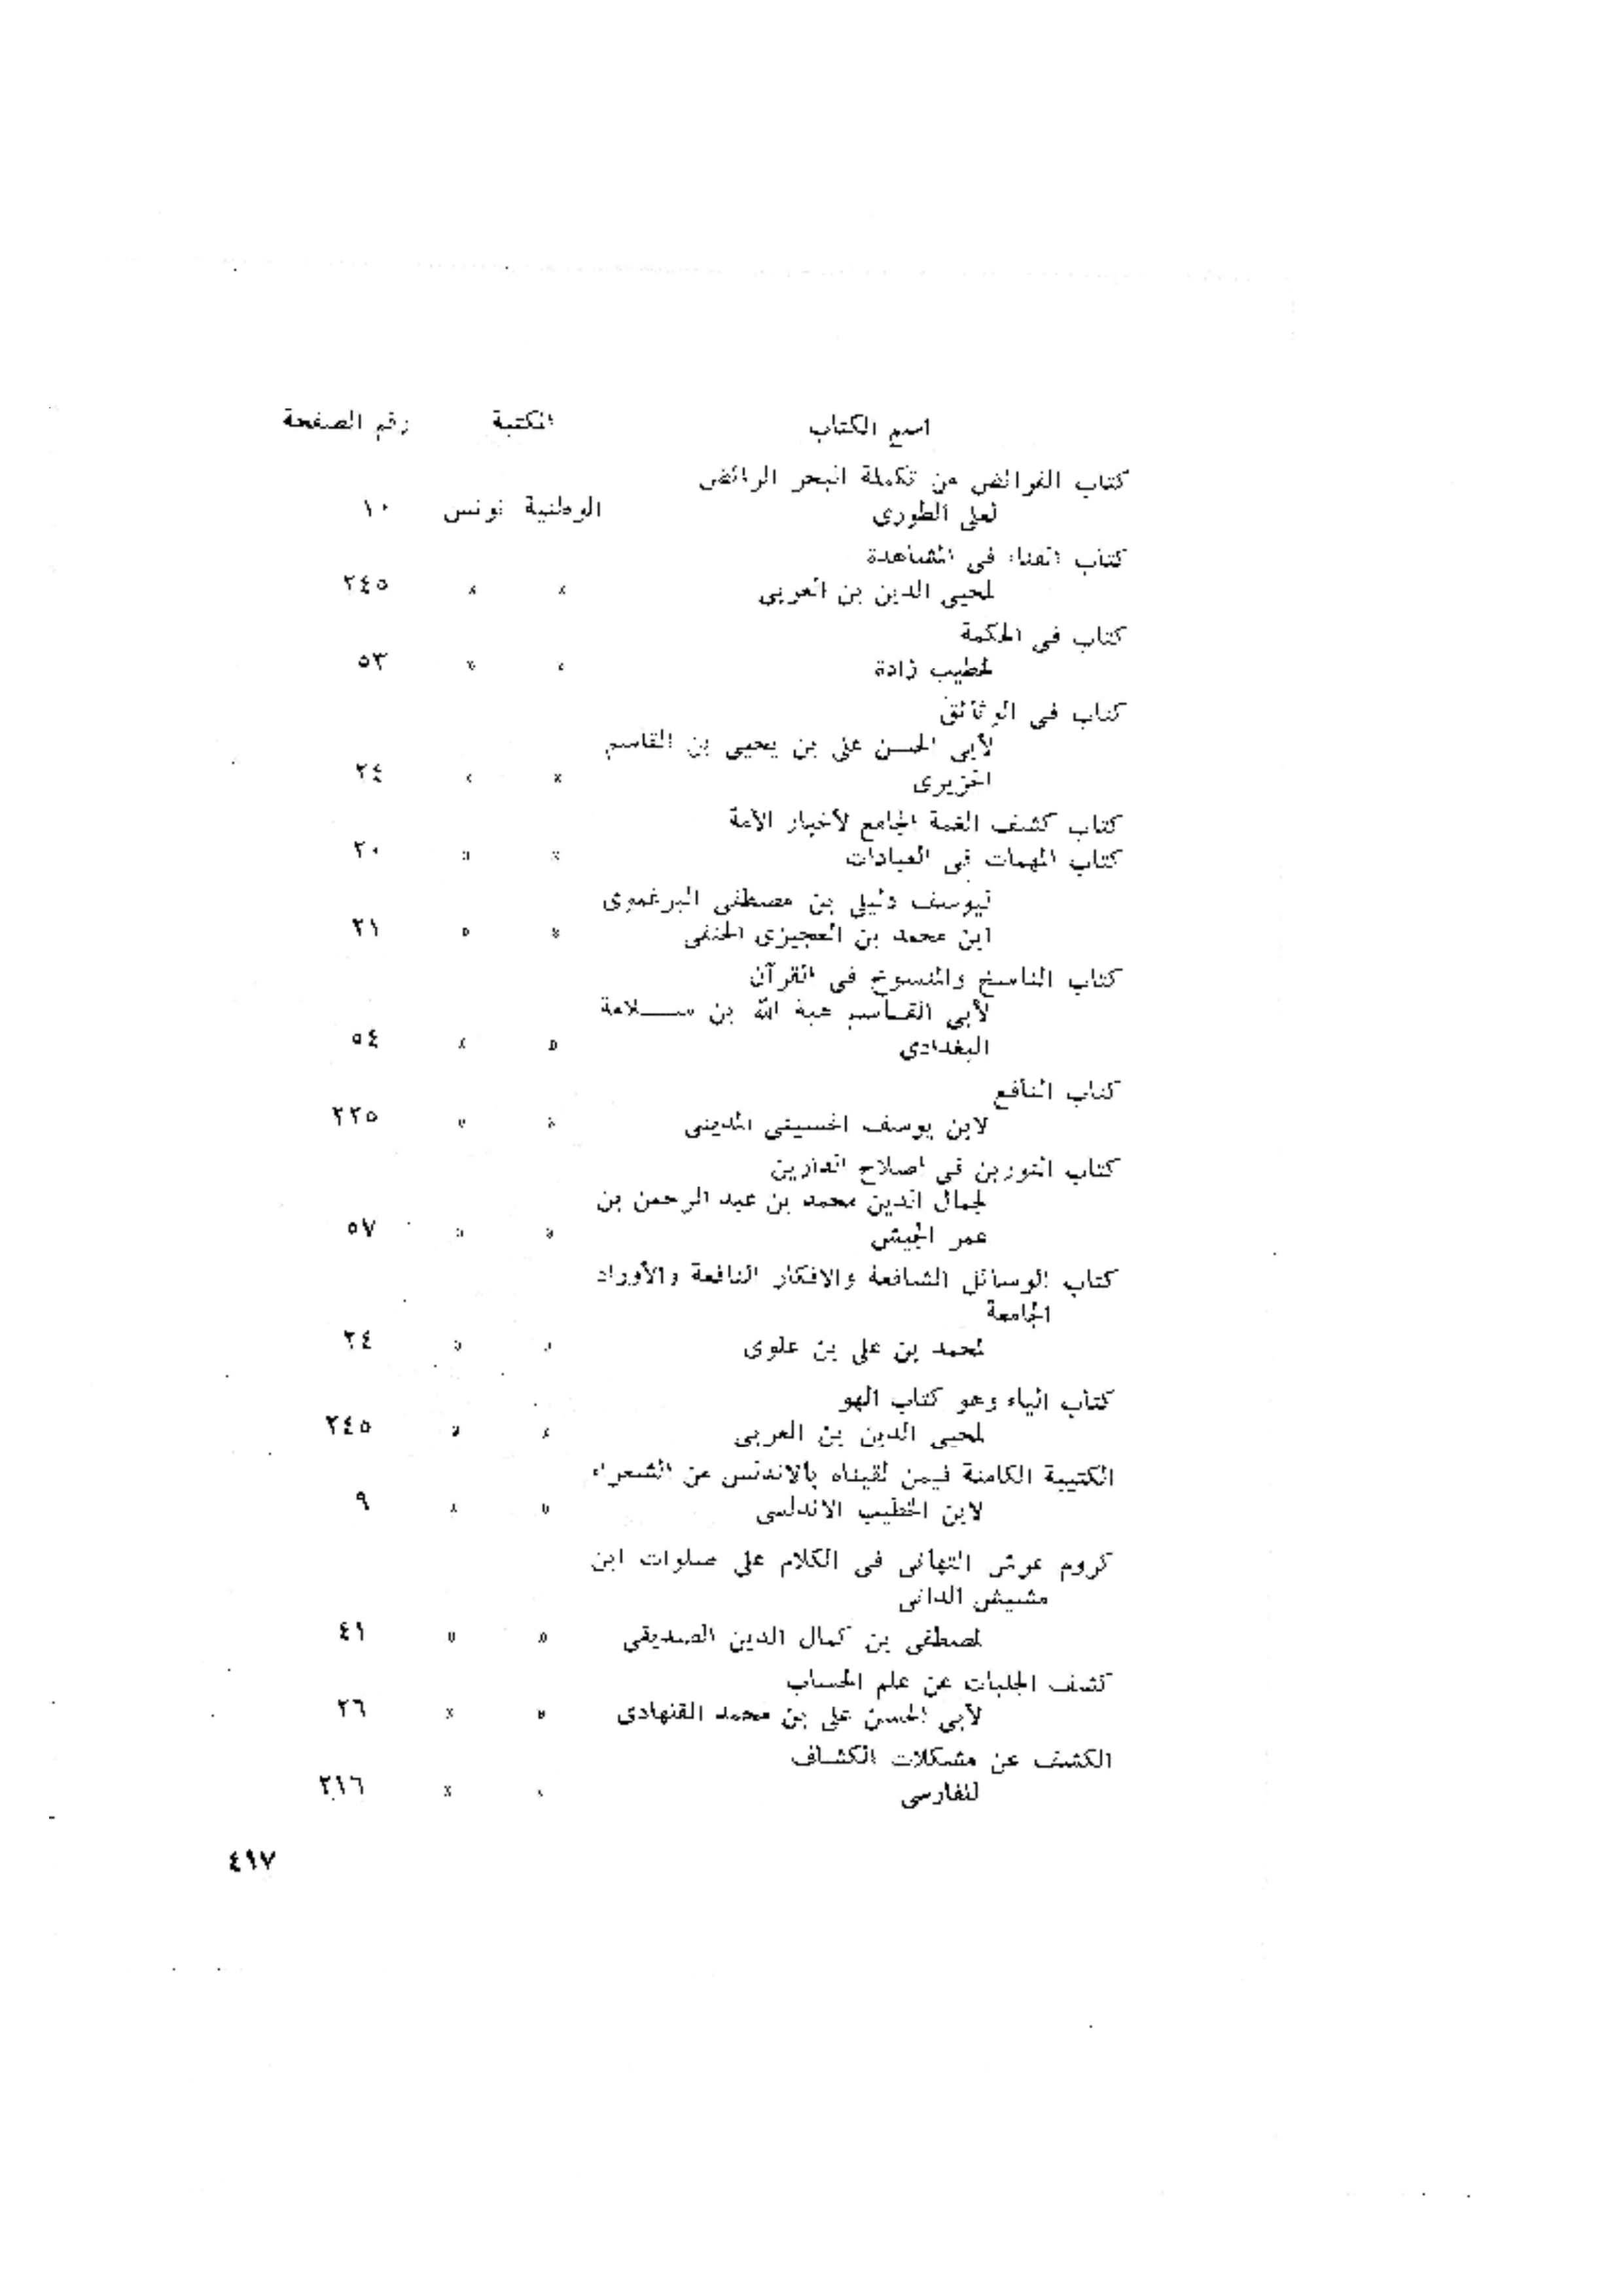 اسم الكتاب المكتبة رقم الصفحة
كتاب الفرائض من تكملة البحر الرائض
لعلى الطورى الوطنية تونس ١٠
كتاب الفناء فى المشاهدة
لمحيى الدين بن العربى » » ٢٤٥
كتاب فى الحكمة
لخطيب زادة » » ٥٣
كتاب فى الوثائق
لأبى الحسن على بن يحيى بن القاسم
الجزيرى » » ٢٤
كتاب كشف الغمة الجامع لأخبار الأمة
كتاب المهمات فى العبادات » » ٢٠
ليوسف دليلى بن مصطفى البرغموى
ابن محمد بن العجيزى الحنفى » » ٢١
كتاب الناسخ والمنسوخ فى القرآن
لأبى القاسم هبة الله بن سلامة
البغدادى » » ٥٤
كتاب النافع
لابن يوسف الحسينى المدينى » » ٢٢٥
كتاب النورين فى اصلاح الدارين
لجمال الدين محمد بن عبد الرحمن بن
عمر الجيش » » ٥٧
كتاب الوسائل الشافعة والافكار النافعة والأوراد
الجامعة
لمحمد بن على بن علوى » » ٢٤
كتاب الياء وهو كتاب الهو
لمحيى الدين بن العربى » » ٢٤٥
الكتيبة الكامنة فيمن لقيناه بالاندلس من الشعراء
لابن الخطيب الاندلسى » » ٩
كروم عرش التهانى فى الكلام على صلوات ابن
مشيش الدانى
لمصطفى بن كمال الدين الصديقى » » ٤١
كشف الجلباب عن علم الحساب
لأبى الحسن على بن محمد القنهادى » » ٢٦
الكشف عن مشكلات الكشاف
للفارسى » » ٢١٦
٤٩٧